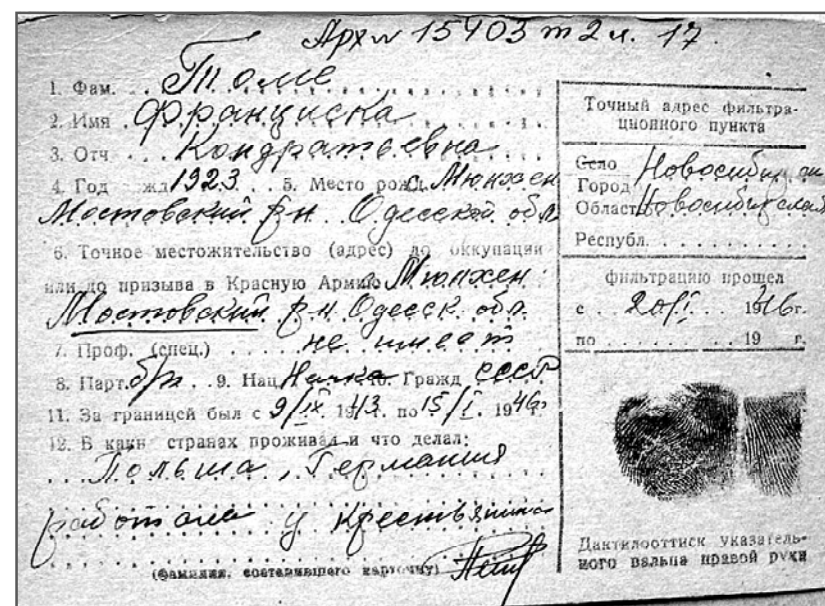 Арх № 15403 т 2 л. 17.
1. Фам. . . Томе
2. Имя . Франциска
3. Отч . . . Кондратьевна
4. Год рожд 1923. . . 5. Место рожд. с. Мюнхен
Мостовский р-н. Одесской обл
6. Точное местожительство (адрес) до оккупации
или до призыва в Красную Армию с. Мюнхен
Мостовский р-н Одесск. обл.
7. Проф. (спец.) . . . . не имеет
8. Парт. б/п . . 9. Нац. Немка 10. Гражд СССР
11. За границей был с 9/IX. 1943. по 15/I. 1946г.
12. В каких странах проживал и что делал:
. . . Польша, Германия
работала у крестьянина
(фамилия, составившего карточку)
Точный адрес фильтра-
ционного пункта
Село
Город Новосибирск
Область Новосибирская
Республ. . . . . . . . .
фильтрацию прошел
с . . 20/I. . . 1946г.
по . . . . . . . . 19 г.
Дактилооттиск указатель-
ного пальца правой руки